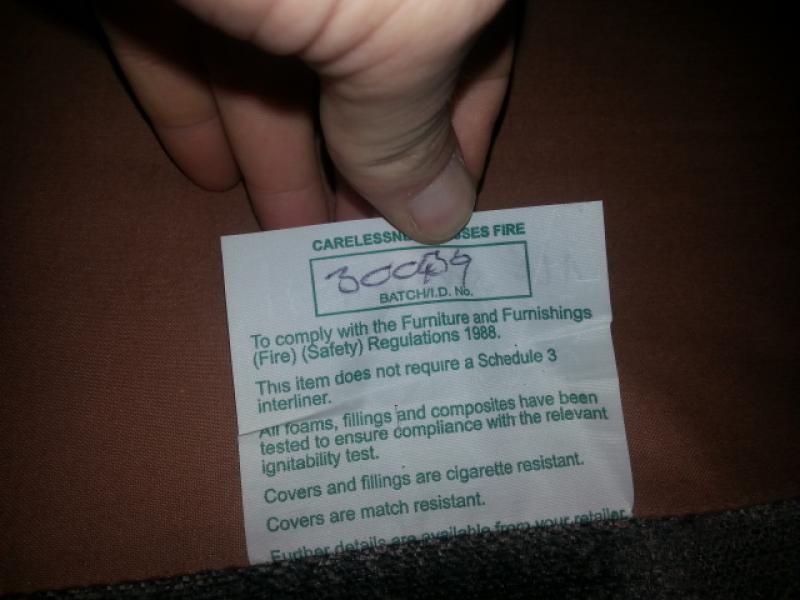 CARELESSNE SES FIRE
BATCH/I.D. No.
To comply with the Furniture and Furnishings
(Fire) (Safety) Regulations 1988.
This item does not require a Schedule 3
interliner.
All foams, fillings and composites have been
tested to ensure compliance with the relevant
ignitability test.
Covers and fillings are cigarette resistant.
Covers are match resistant.
Further details are available from your retailer